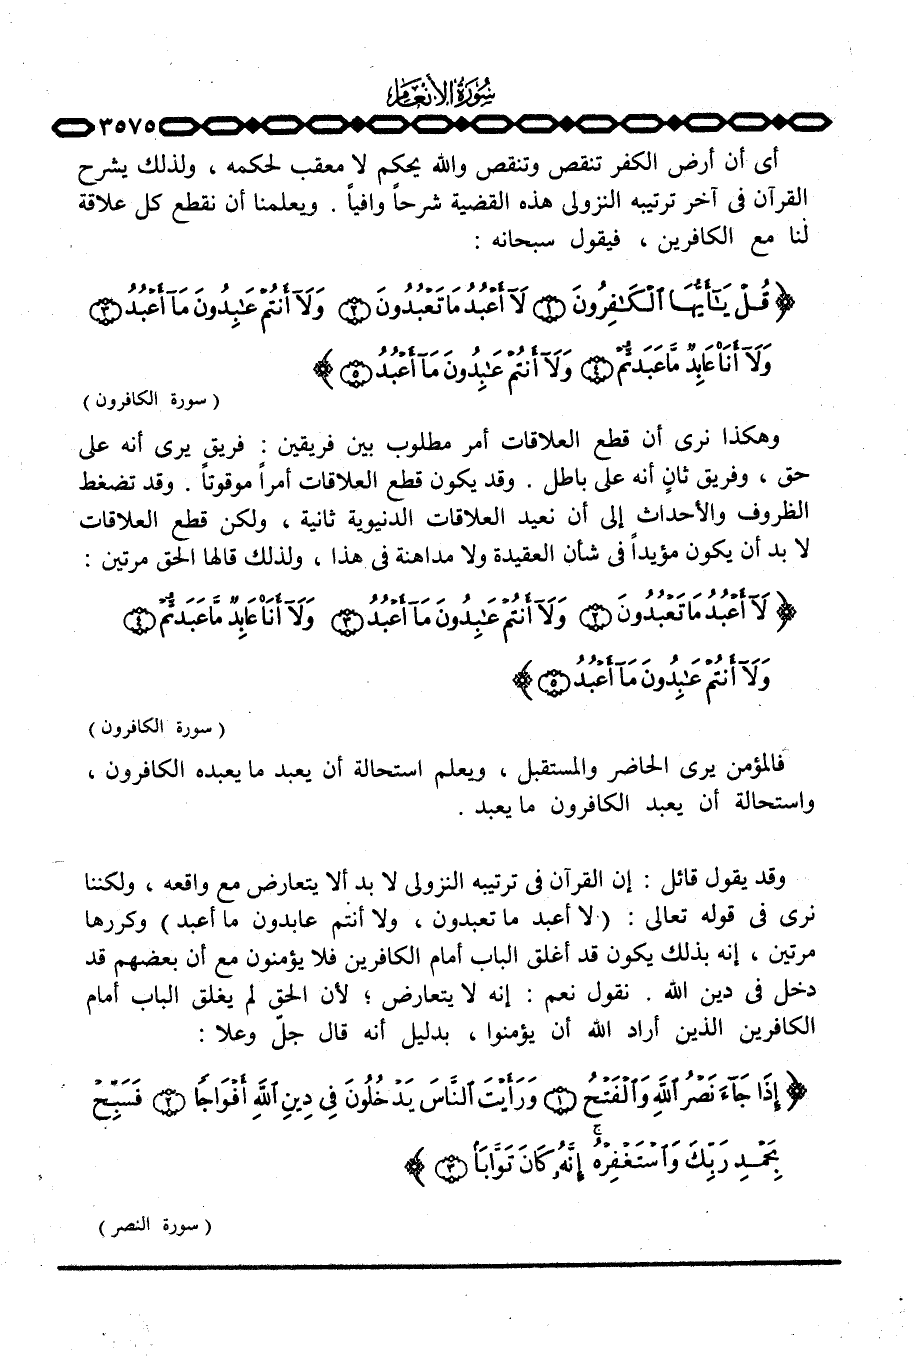 سُورَةُ الأَنعَام
٣٥٧٥
أى أن أرض الكفر تنقص وتنقص والله يحكم لا معقب لحكمه ، ولذلك يشرح
القرآن فى آخر ترتيبه النزولى هذه القضية شرحاً وافياً . ويعلمنا أن نقطع كل علاقة
لنا مع الكافرين ، فيقول سبحانه :
﴿ قُلْ يَٰٓأَيُّهَا ٱلْكَٰفِرُونَ ۝١ لَآ أَعْبُدُ مَا تَعْبُدُونَ ۝٢ وَلَآ أَنتُمْ عَٰبِدُونَ مَآ أَعْبُدُ ۝٣
وَلَآ أَنَا۠ عَابِدٌ مَّا عَبَدتُّمْ ۝٤ وَلَآ أَنتُمْ عَٰبِدُونَ مَآ أَعْبُدُ ۝٥ ﴾
( سورة الكافرون )
وهكذا نرى أن قطع العلاقات أمر مطلوب بين فريقين : فريق يرى أنه على
حق ، وفريق ثانٍ أنه على باطل . وقد يكون قطع العلاقات أمراً موقوتاً . وقد تضغط
الظروف والأحداث إلى أن نعيد العلاقات الدنيوية ثانية ، ولكن قطع العلاقات
لا بد أن يكون مؤبداً فى شأن العقيدة ولا مداهنة فى هذا ، ولذلك قالها الحق مرتين :
﴿ لَآ أَعْبُدُ مَا تَعْبُدُونَ ۝٢ وَلَآ أَنتُمْ عَٰبِدُونَ مَآ أَعْبُدُ ۝٣ وَلَآ أَنَا۠ عَابِدٌ مَّا عَبَدتُّمْ ۝٤
وَلَآ أَنتُمْ عَٰبِدُونَ مَآ أَعْبُدُ ۝٥ ﴾
( سورة الكافرون )
فالمؤمن يرى الحاضر والمستقبل ، ويعلم استحالة أن يعبد ما يعبده الكافرون ،
واستحالة أن يعبد الكافرون ما يعبد .
وقد يقول قائل : إن القرآن فى ترتيبه النزولى لا بد ألا يتعارض مع واقعه ، ولكننا
نرى فى قوله تعالى : ( لا أعبد ما تعبدون ، ولا أنتم عابدون ما أعبد ) وكررها
مرتين ، إنه بذلك يكون قد أغلق الباب أمام الكافرين فلا يؤمنون مع أن بعضهم قد
دخل فى دين الله . نقول نعم : إنه لا يتعارض ؛ لأن الحق لم يغلق الباب أمام
الكافرين الذين أراد الله أن يؤمنوا ، بدليل أنه قال جلّ وعلا :
﴿ إِذَا جَآءَ نَصْرُ ٱللَّهِ وَٱلْفَتْحُ ۝١ وَرَأَيْتَ ٱلنَّاسَ يَدْخُلُونَ فِى دِينِ ٱللَّهِ أَفْوَاجًا ۝٢ فَسَبِّحْ
بِحَمْدِ رَبِّكَ وَٱسْتَغْفِرْهُ ۚ إِنَّهُۥ كَانَ تَوَّابَۢا ۝٣ ﴾
( سورة النصر )